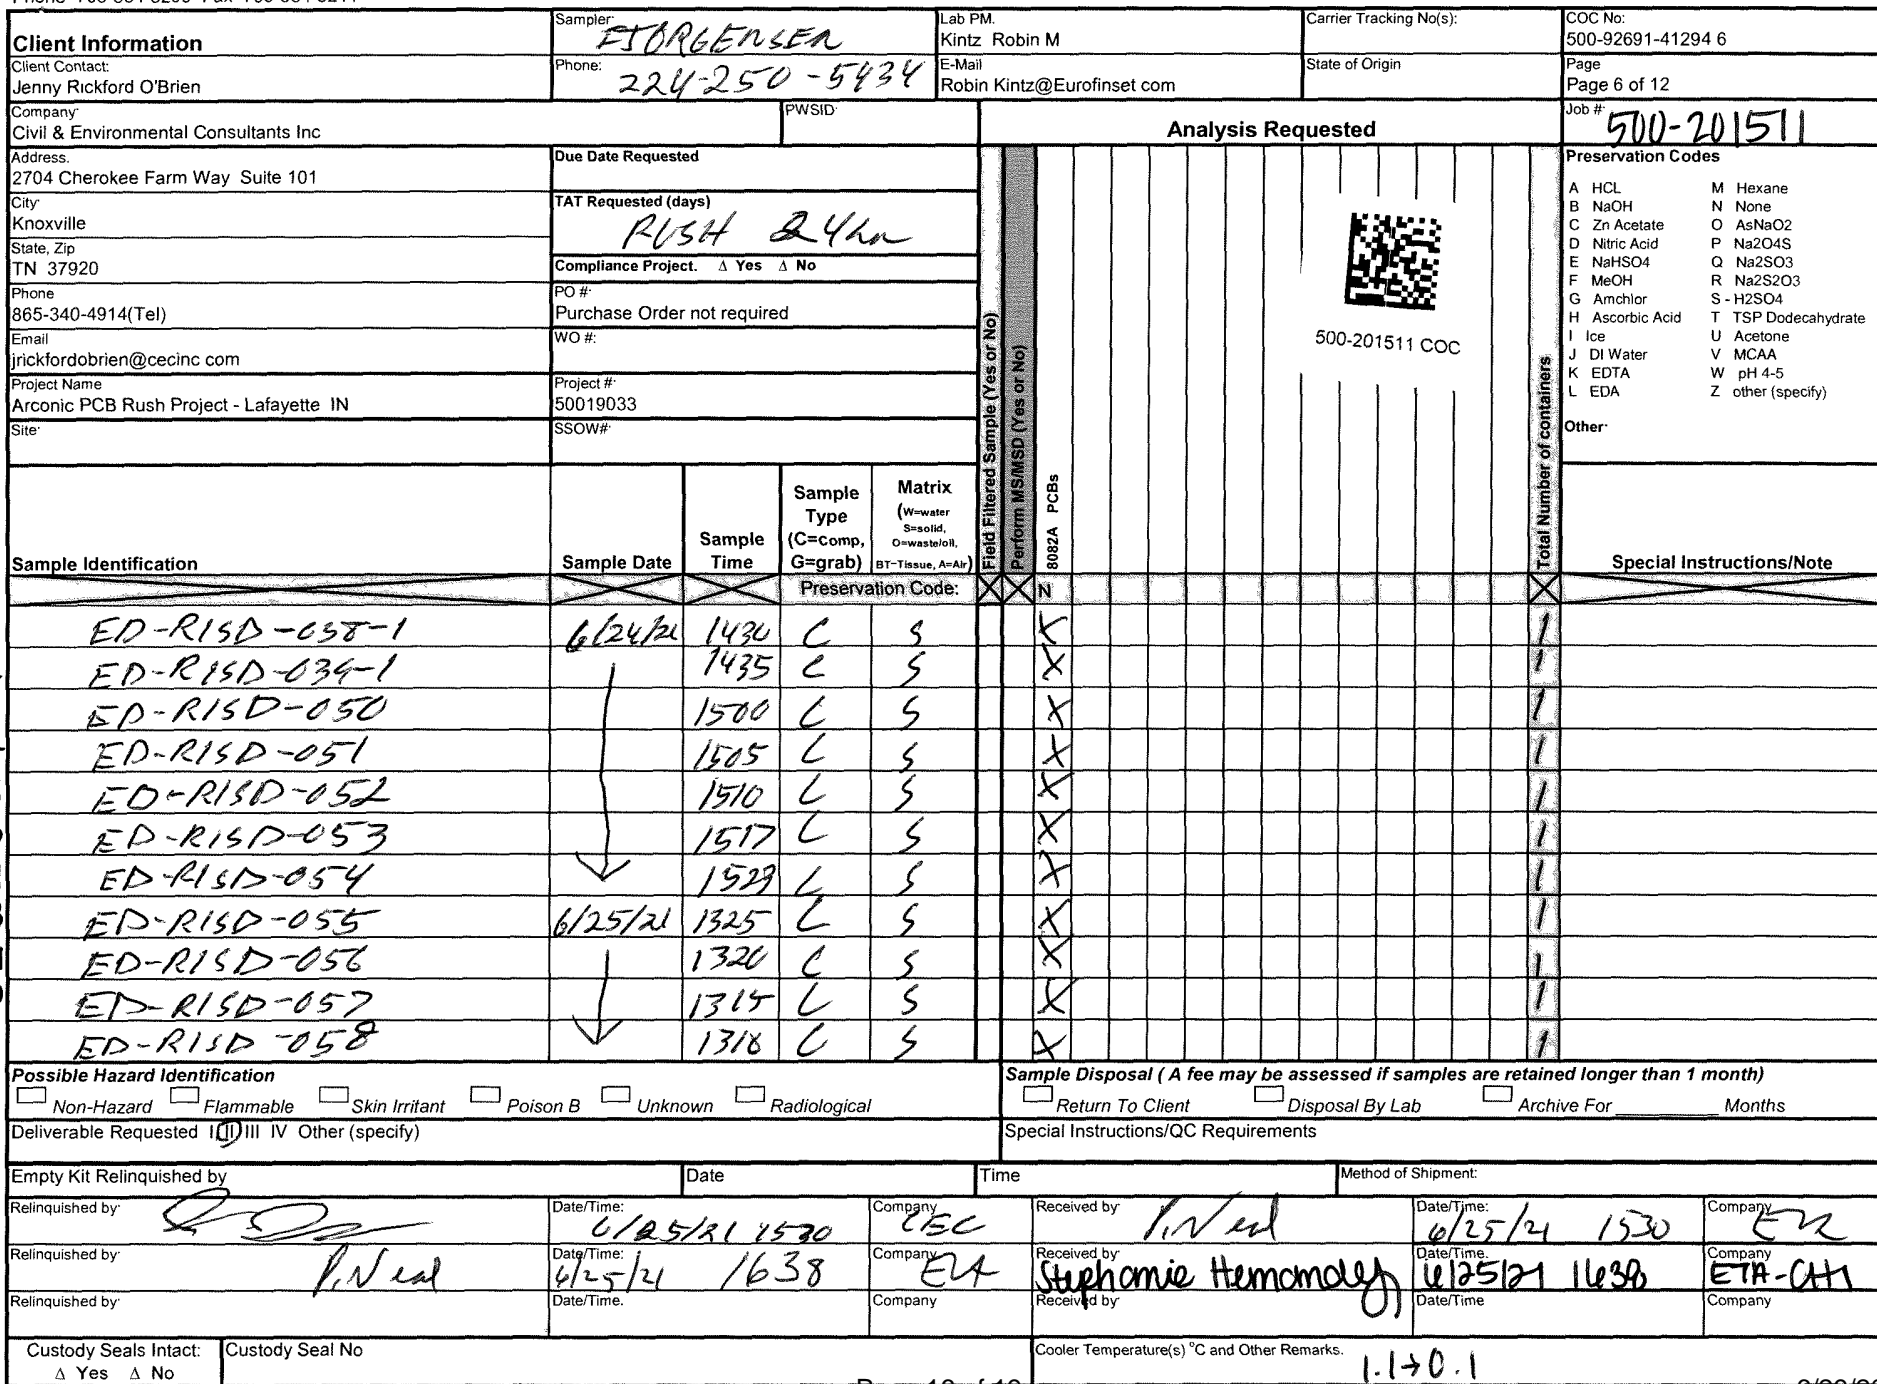 Client Information
Sampler: EJORGENSEN
Lab PM.
Kintz Robin M
Carrier Tracking No(s):
COC No:
500-92691-41294 6
Client Contact:
Jenny Rickford O'Brien
Phone: 224-250-5434
E-Mail
Robin Kintz@Eurofinset com
State of Origin
Page
Page 6 of 12
Company
Civil & Environmental Consultants Inc
PWSID
Analysis Requested
Job #
500-201511
Address.
2704 Cherokee Farm Way Suite 101
Due Date Requested
City
Knoxville
TAT Requested (days)
RUSH 24hr
State, Zip
TN 37920
Compliance Project. Δ Yes Δ No
Phone
865-340-4914(Tel)
PO #
Purchase Order not required
Email
jrickfordobrien@cecinc com
WO #:
Project Name
Arconic PCB Rush Project - Lafayette IN
Project #
50019033
Site
SSOW#
500-201511 COC
Preservation Codes
A HCL M Hexane
B NaOH N None
C Zn Acetate O AsNaO2
D Nitric Acid P Na2O4S
E NaHSO4 Q Na2SO3
F MeOH R Na2S2O3
G Amchlor S - H2SO4
H Ascorbic Acid T TSP Dodecahydrate
I Ice U Acetone
J DI Water V MCAA
K EDTA W pH 4-5
L EDA Z other (specify)
Other
Sample Identification
Sample Date
Sample Time
Sample Type (C=comp, G=grab)
Matrix (W=water S=solid, O=waste/oil, BT=Tissue, A=Air)
Field Filtered Sample (Yes or No)
Perform MS/MSD (Yes or No)
8082A PCBs
Total Number of containers
Special Instructions/Note
Preservation Code: N
ED-RISD-038-1 6/24/21 1430 C S X 1
ED-RISD-039-1 1435 C S X 1
ED-RISD-050 1500 C S X 1
ED-RISD-051 1505 C S X 1
ED-RISD-052 1510 C S X 1
ED-RISD-053 1517 C S X 1
ED-RISD-054 1523 C S X 1
ED-RISD-055 6/25/21 1325 C S X 1
ED-RISD-056 1320 C S X 1
ED-RISD-057 1315 C S X 1
ED-RISD-058 1318 C S X 1
Possible Hazard Identification
Non-Hazard Flammable Skin Irritant Poison B Unknown Radiological
Sample Disposal ( A fee may be assessed if samples are retained longer than 1 month)
Return To Client Disposal By Lab Archive For Months
Deliverable Requested I II III IV Other (specify)
Special Instructions/QC Requirements
Empty Kit Relinquished by
Date
Time
Method of Shipment:
Relinquished by
Date/Time: 6/25/21 1530
Company CEC
Received by P. Neal
Date/Time: 6/25/21 1530
Company
Relinquished by P. Neal
Date/Time: 6/25/21 1638
Company
Received by Stephanie Hernandez
Date/Time. 6/25/21 1638
Company ETA-CHI
Relinquished by
Date/Time.
Company
Received by
Date/Time
Company
Custody Seals Intact:
Δ Yes Δ No
Custody Seal No
Cooler Temperature(s) °C and Other Remarks. 1.1→0.1